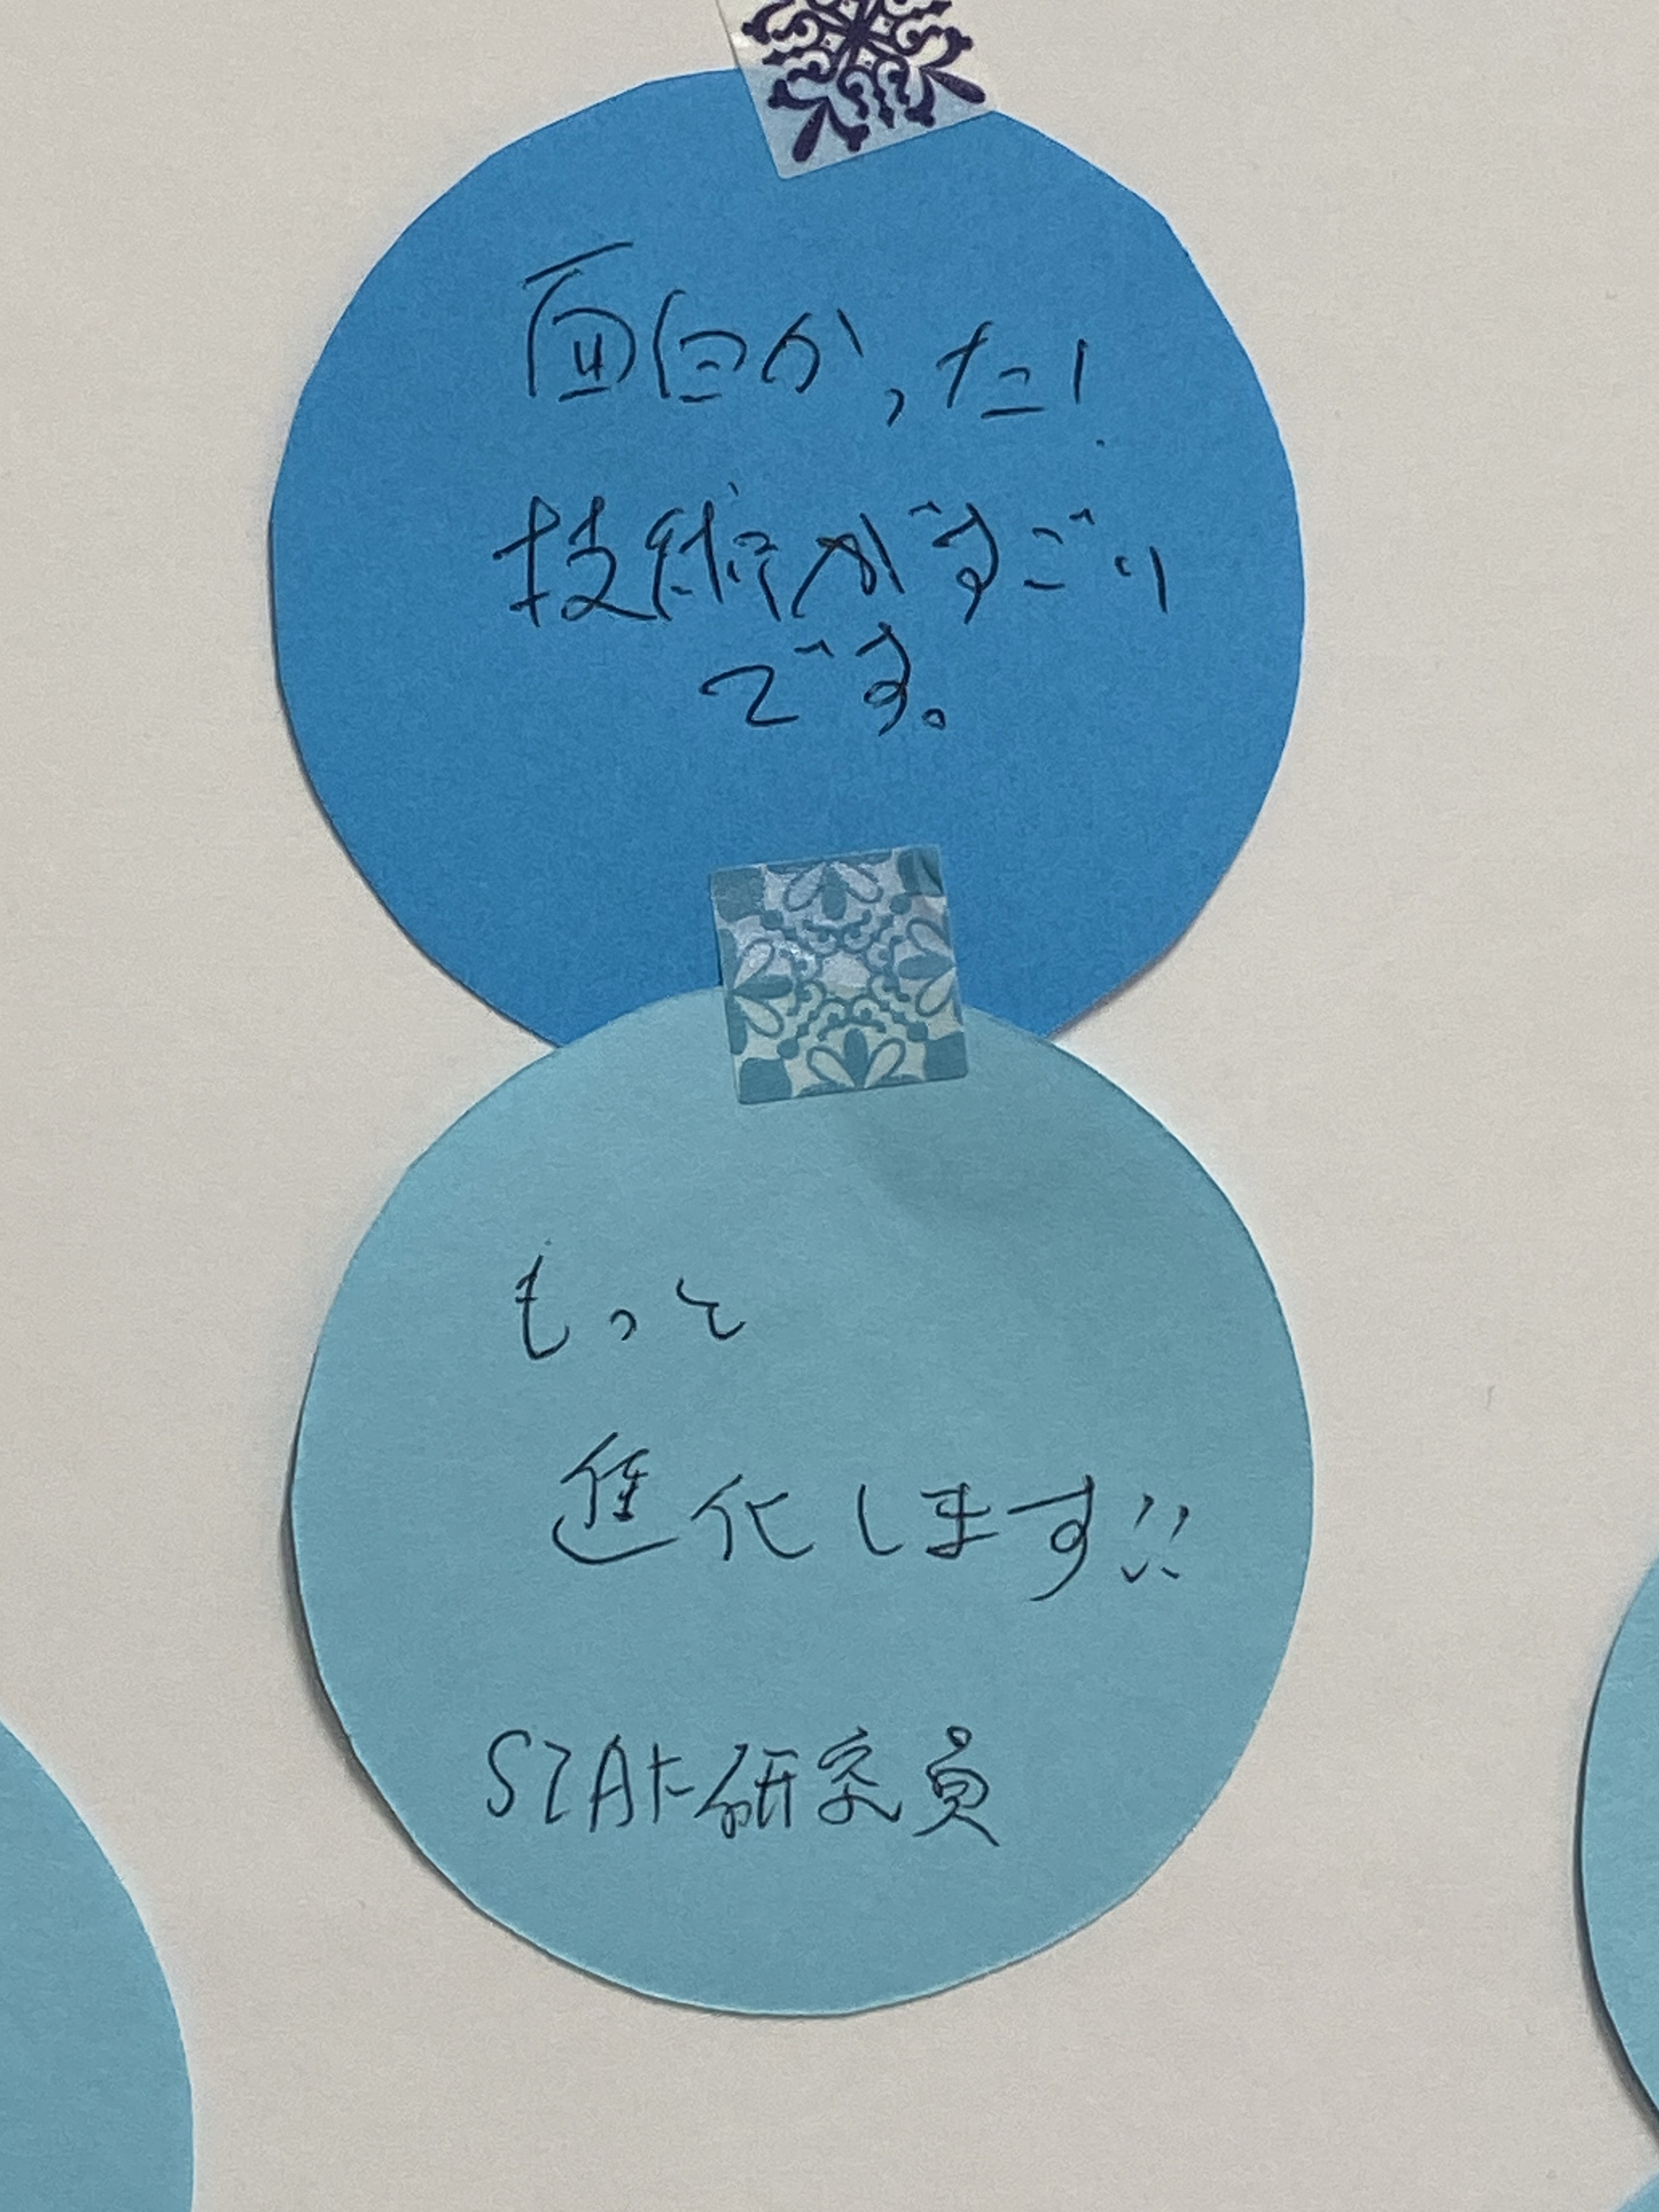 面白かった!
技術がすごい
です。
もっと
進化します!!
研究員